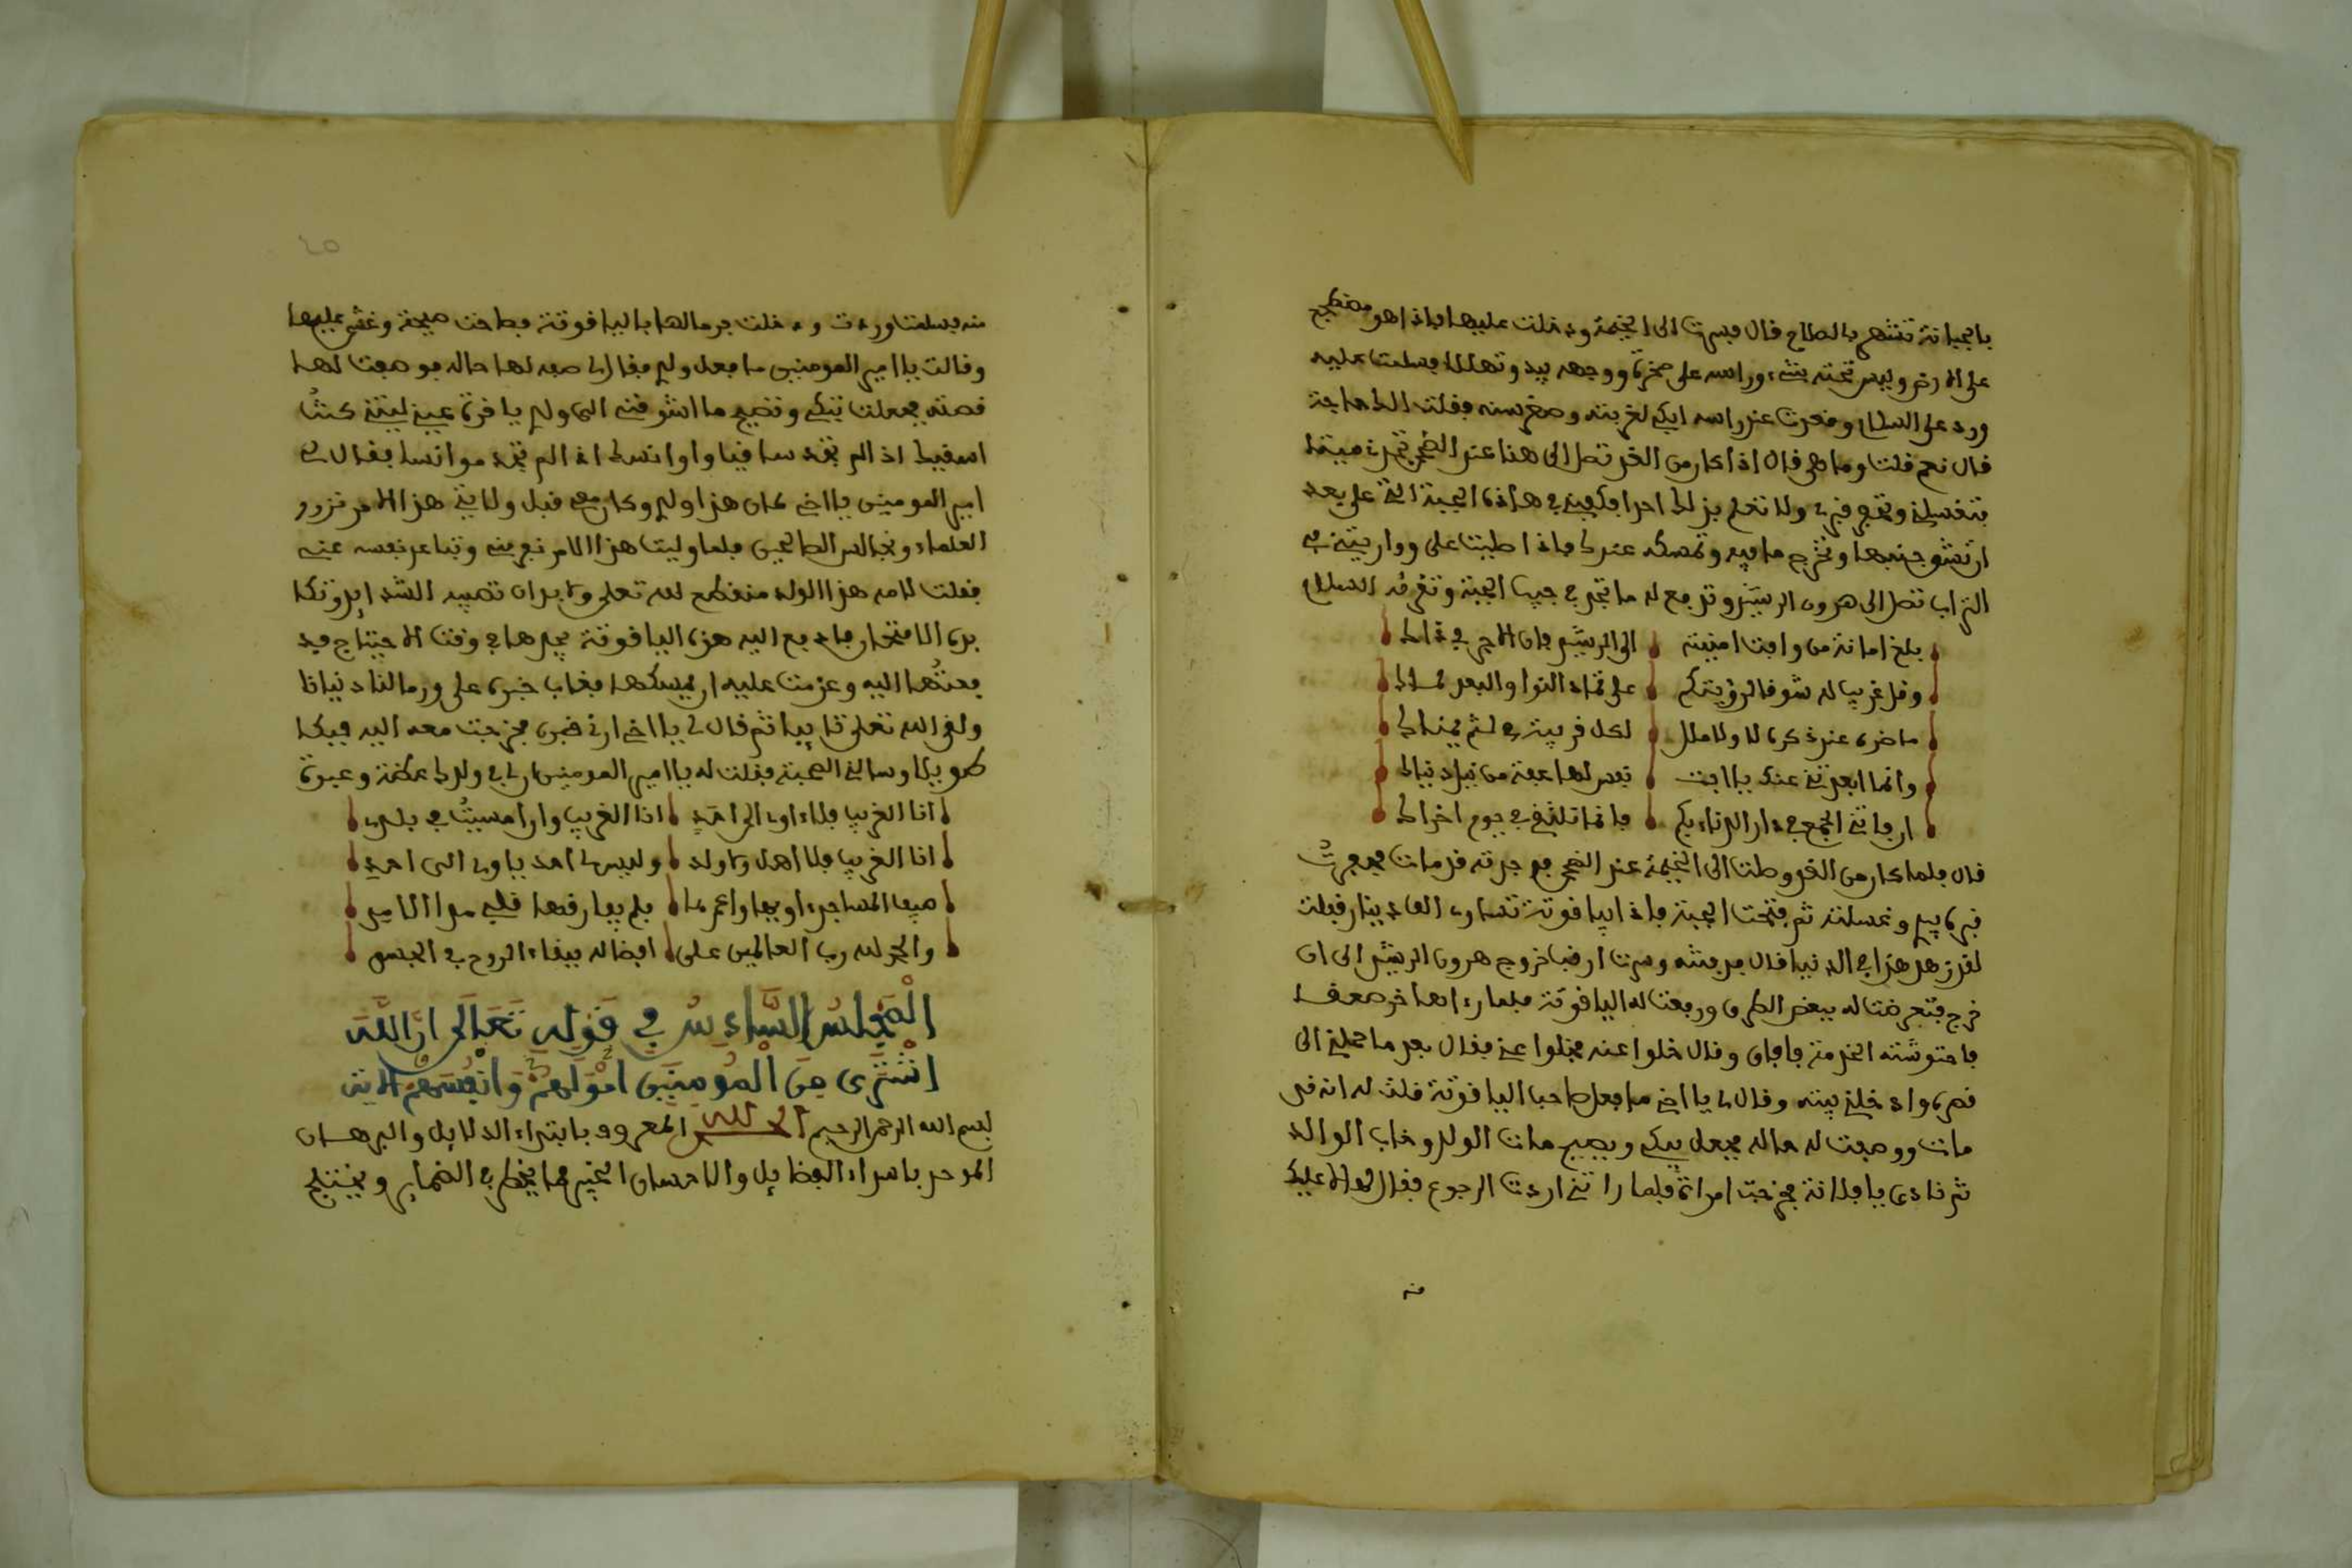 بالجبانة تشتهر بالصلاح قال فسرت الى الخيمة ودخلت عليها فاذا هو مضطجع
على الارض وليس تحته شيء وراسه على صخرة ووجهه يبدو تهللا فسلمت عليه
ورد على السلام وقعدت عند راسه ابكي لغربته وصغر سنه فقلت الك حاجة
قال نعم قلت وما هي قال اذا كان من الغد تصل الى هنا عند الضحى تجدني ميتا
فتغسلني وتحفر قبري ولا تعلم بذلك احدا وكفني في هذه الجبة التي علي بعد
ان تفتق جنبها وتخرج ما فيه وتمسكه عندك فاذا صليت علي وواريتني في
التراب تصل الى هرون الرشيد وتدفع له ما تجد في جيب الجبة وتقرئه السلام
بلغ امانة من وافت امنيته الى الرشيد فان الاجر في ذاك
وقل غريب له شوق لرؤيتكم على تماد النوا والبعد لباك
ما ضره عنك ذكره لا ولا ملل لكل قربته في لثم يمناك
وانما ابعدتني عنك يا ابت نفس لها عفة من نيل دنياك
ان فاتني الجمع في دار الدنا بكم فانما نلتقي في يوم اخراك
قال فلما كان من الغد وصلت الى الخيمة عند الضحى فوجدته قد مات فحفرت
قبره بيدي وغسلته ثم فتحت الجبة فاذا بياقوتة تساوي الف دينار فقلت
لقد زهد هذا في الدنيا قال فدفنته وسرت ارقب خروج هرون الرشيد الى ان
خرج فتعرضت له ببعض الطريق ودفعت له الياقوتة فلما راها خر صعقا
فاحتوشته الخدمة فافاق وقال خلوا عنه فخلوا عني فقال بعد ما حملني الى
قصره وادخلني بيته وقال لي يا اخي ما فعل صاحب الياقوتة قلت له انه قد
مات ووصفت له حاله فجعل يبكي ويصيح مات الولد وخاب الوالد
ثم نادى يا فلانة فخرجت امراة فلما راتني ارادت الرجوع فقال لها لا عليك
منه
منه فسلمت وردت ودخلت فرمى لها بالياقوتة فصاحت صيحة وغشي عليها
وقالت يا امير المومنين ما فعل ولدي فقال لي صف لها حاله فوصفت لها
قصته فجعلت تبكي وتصيح ما اشوقني الى ولدي يا قرة عيني ليتني كنت
اسقيك اذ لم تجد ساقيا واوانسك اذ الم تجد موانسا فقال لي
امير المومنين يا اخي كان هذا ولدي وكان معي قبل ولايتي هذا الامر تزور
العلماء ونجالس الصالحين فلما وليت هذا الامر نفر مني وتباعد نفسه عني
فقلت لامه هذا الولد منقطع لله تعلى ولابد ان تصيبه الشدائد وتكا
بده الامتحان فادفع اليه هذه الياقوتة يجدها في وقت الاحتياج فد
فعتها اليه وعزمت عليه ان يمسكها فغاب خبره على ورما لنا دنيانا
ولقي الله تعلى تائبا ثم قال لي يا اخي ارني قبره فخرجت معه اليه فبكا
طويلا وسالني الصحبة فقلت له يا امير المومنين ان لي في ولدك عظمة وعبرة
انا الغريب فلا اوى الى احد انا الغريب وان امسيت في بلدي
انا الغريب فلا اهل ولا ولد وليس لي احد ياوى الى احد
فيها المساجد اويها واعمرها فلم يفارقها قلبي مدا الابد
والحمد لله رب العالمين على افضاله ببقاء الروح في الجسد
المجلس السادس في قوله تعالى ان الله
اشترى من المومنين اموالهم وانفسهم الاية
بسم الله الرحمن الرحيم الحمد لله المعروف بابتداء الدلايل والبرهان
الموحد باسداء الفضايل والاحسان الخبير بما يخطر في الضماير ويختلج